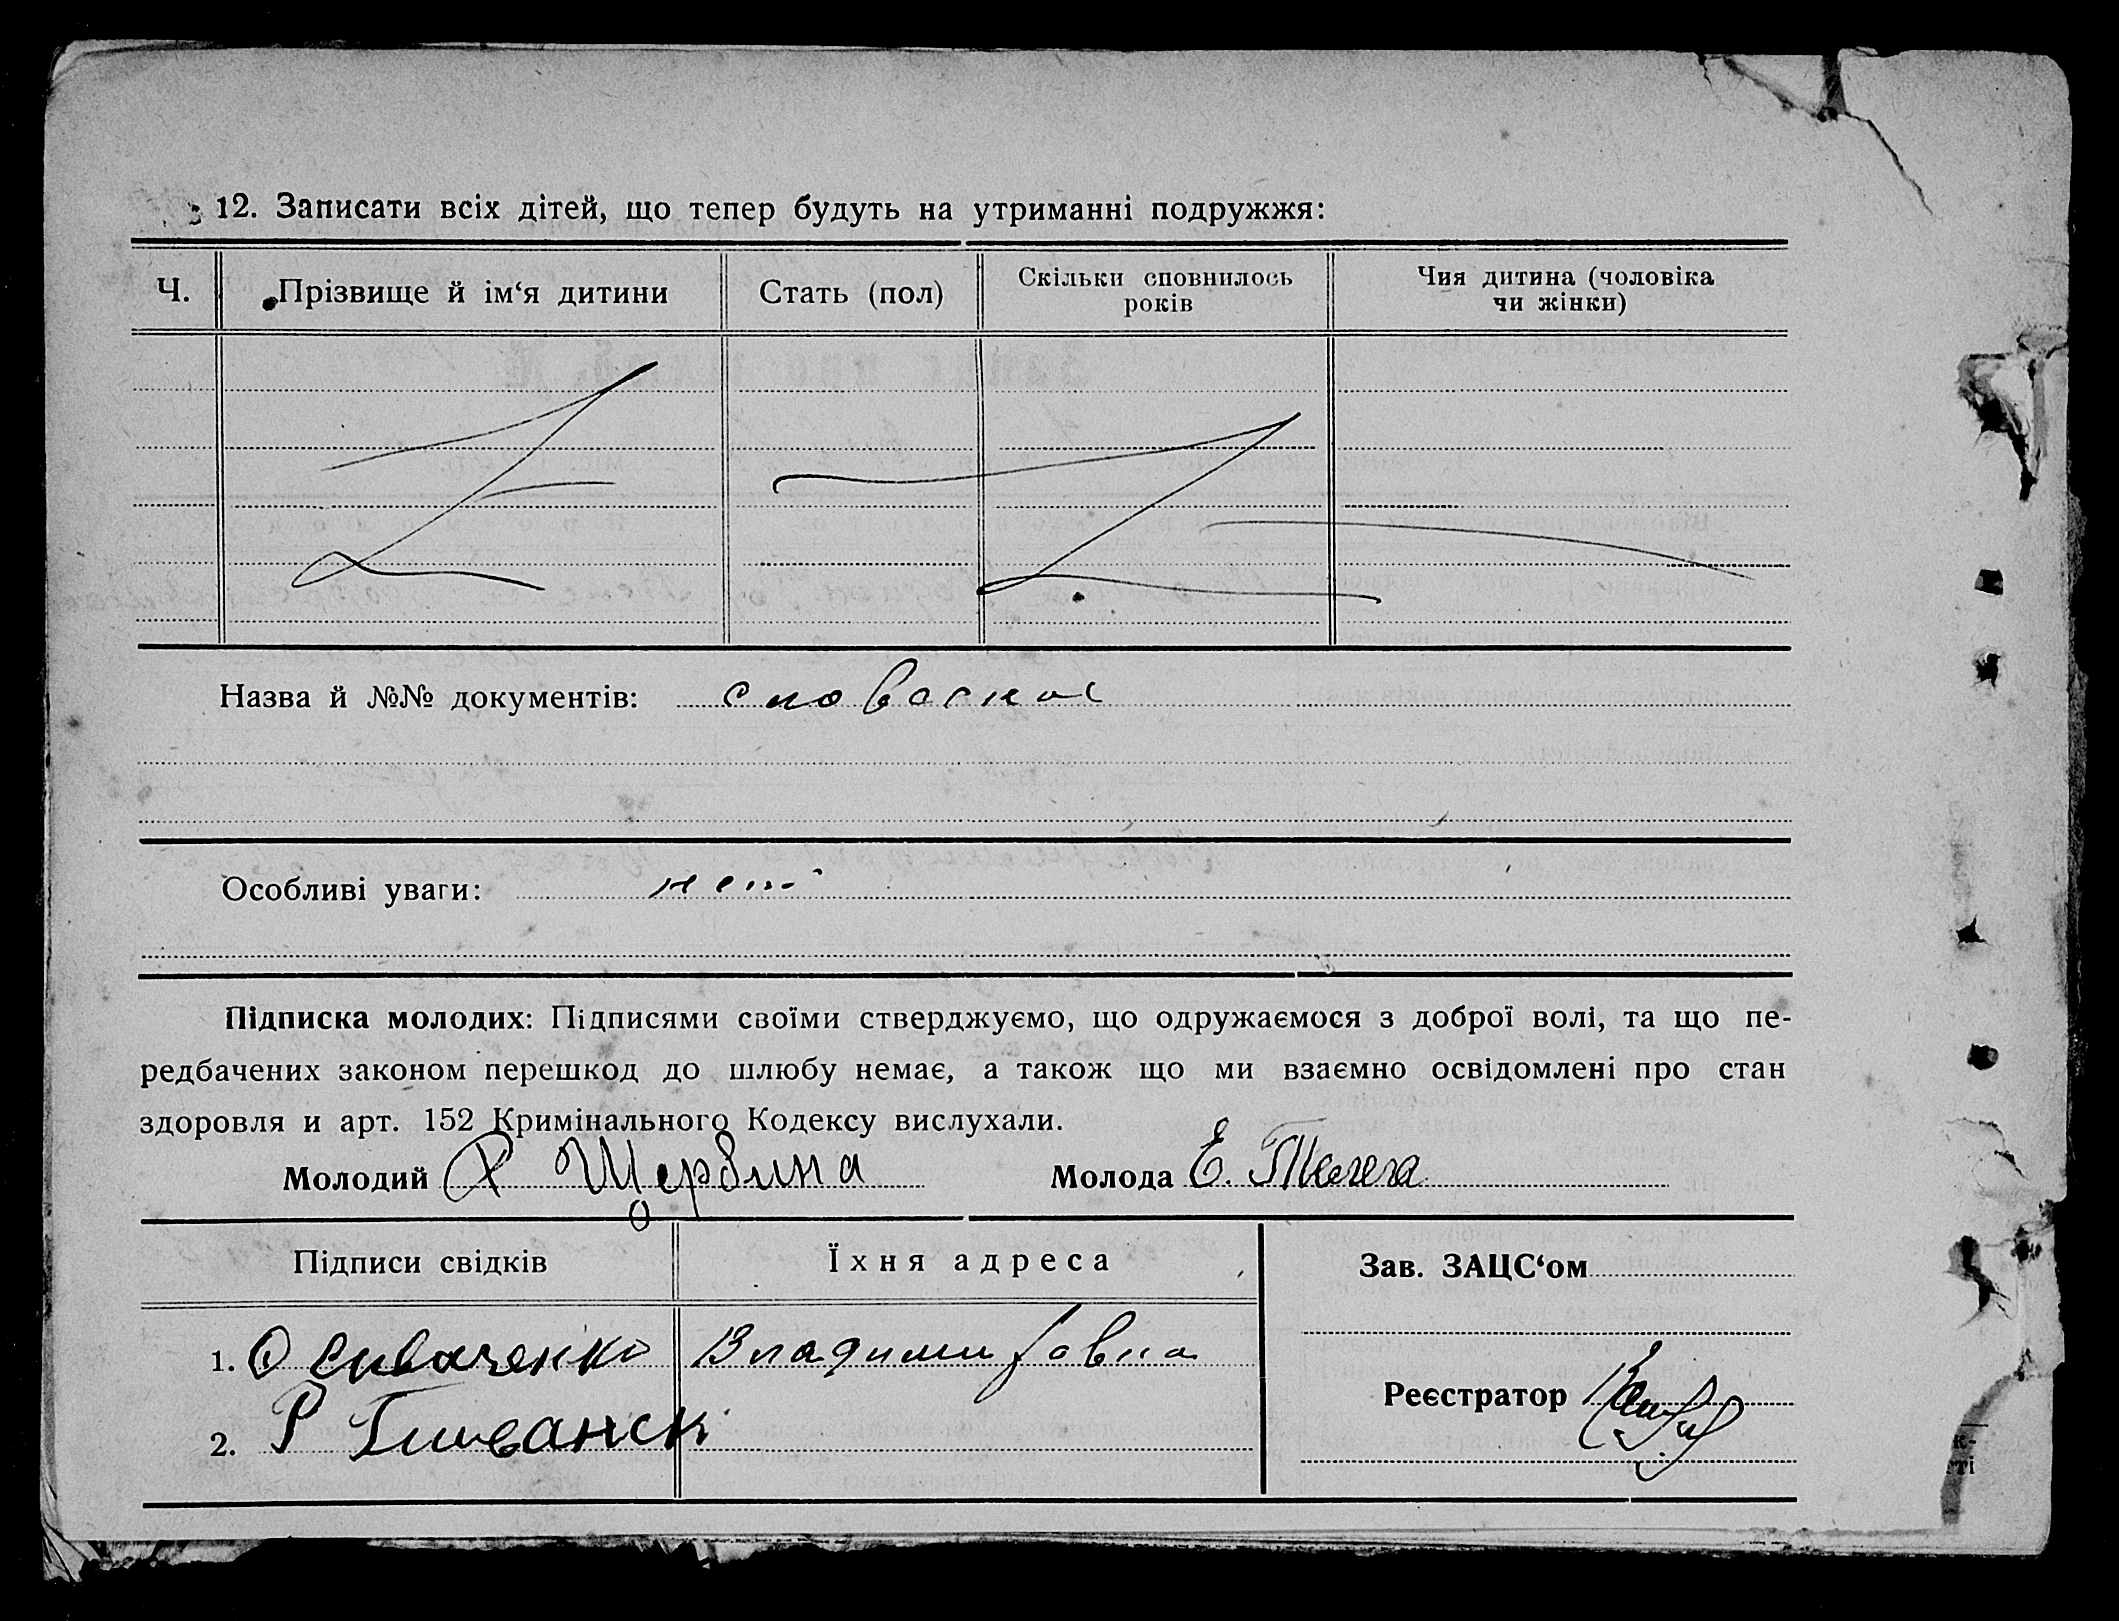 12. Записати всіх дітей, що тепер будуть на утриманні подружжя:
Ч. Прізвище й ім‘я дитини Стать (пол) Скільки сповнилось років Чия дитина (чоловіка чи жінки)
Назва й №№ документів:
Особливі уваги: нет
Підписка молодих: Підписями своїми стверджуємо, що одружаємося з доброї волі, та що пе-
редбачених законом перешкод до шлюбу немає, а також що ми взаємно освідомлені про стан
здоровля и арт. 152 Кримінального Кодексу вислухали.
Молодий Щербина Молода Е. Телега
Підписи свідків Їхня адреса Зав. ЗАЦС‘ом
1. О Сиваченко Владимировка
Реєстратор
2. Р